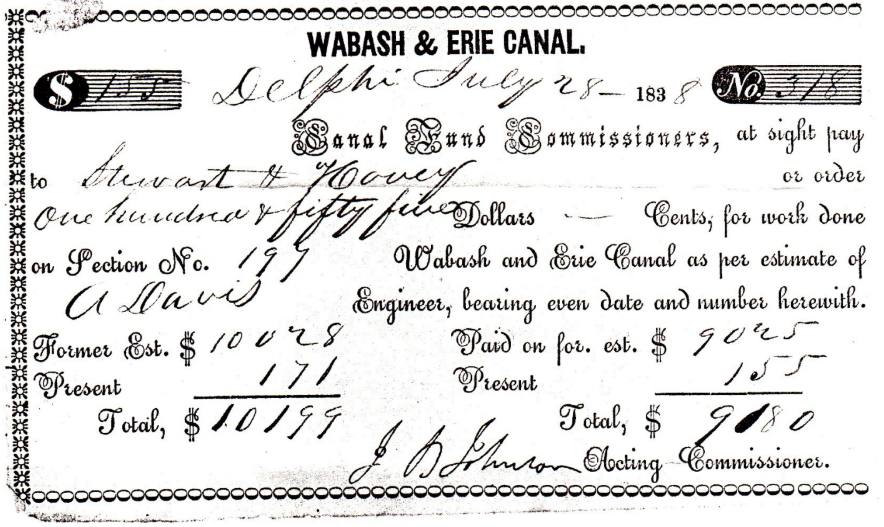 WABASH & ERIE CANAL.
$ 155 Delphi July 28 – 1838 No. 318
Canal Fund Commissioners, at sight pay
to Stewart & Hovey or order
One hundred & fifty five Dollars — Cents, for work done
on Section No. 199 Wabash and Erie Canal as per estimate of
A Davis Engineer, bearing even date and number herewith.
Former Est. $ 10028 Paid on for. est. $ 9025
Present 171 Present 155
Total, $ 10199 Total, $ 9180
J B Johnson Acting Commissioner.